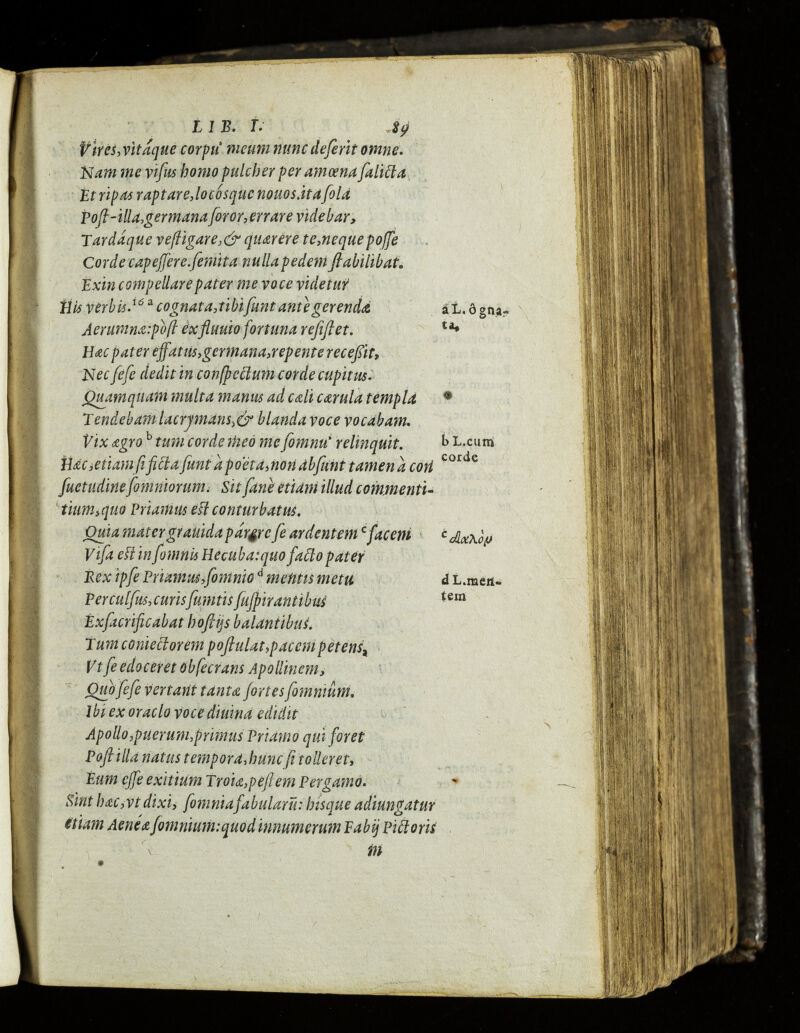 LIB. I. 89
Vires, vitáque corpu' meum nunc deserit omne.
Nam me visus homo pulcher per amœna salicta
Et ripas raptare, locósque nouos. ita sola
Post-illa, germana soror, errare videbar,
Tardáque vestigare, & quærere te, neque posse
Corde capessere. semita nulla pedem stabilibat.
Exin compellare pater me voce videtur
His verbis. 16 a ô cognata, tibi sunt antè gerendæ
a L. ô gna-
ta,
Aerumnæ: pòst ex fluuio fortuna resistet.
Hæc pater effatus, germana, repente recessit,
Nec sese dedit in conspectum corde cupitus.
Quamquam multa manus ad cæli cærula templa
*
Tendebam lacrymans, & blanda voce vocabam.
Vix ægro b tum corde meo me somnu' relinquit.
b L. cum
corde
Hæc, etiam si ficta sunt à poëta, non absunt tamen à con
suetudine somniorum. Sit sanè etiam illud commenti-
tium, quo Priamus est conturbatus.
Quia mater grauida párere se ardentem c facem
c δαλόν
Visa est in somnis Hecuba: quo facto pater
Rex ipse Priamus, somnio d mentis metu
d L. men-
tem
Perculsus, curis sumtis suspirantibus
Exsacrificabat hostijs balantibus.
Tum coniectorem postulat, pacem petens,
Vt se edoceret obsecrans Apollinem,
Quò sese vertant tantæ sortes somniûm.
Ibi ex oraclo voce diuina edidit
Apollo, puerum, primus Priamo qui foret
Post illa natus tempora, hunc si tolleret,
Eum esse exitium Troiæ, pestem Pergamo.
Sint hæc, vt dixi, somnia fabularũ: hisque adiungatur
etiam Aenéæ somnium: quod innumerum Fabij Pictoris
in